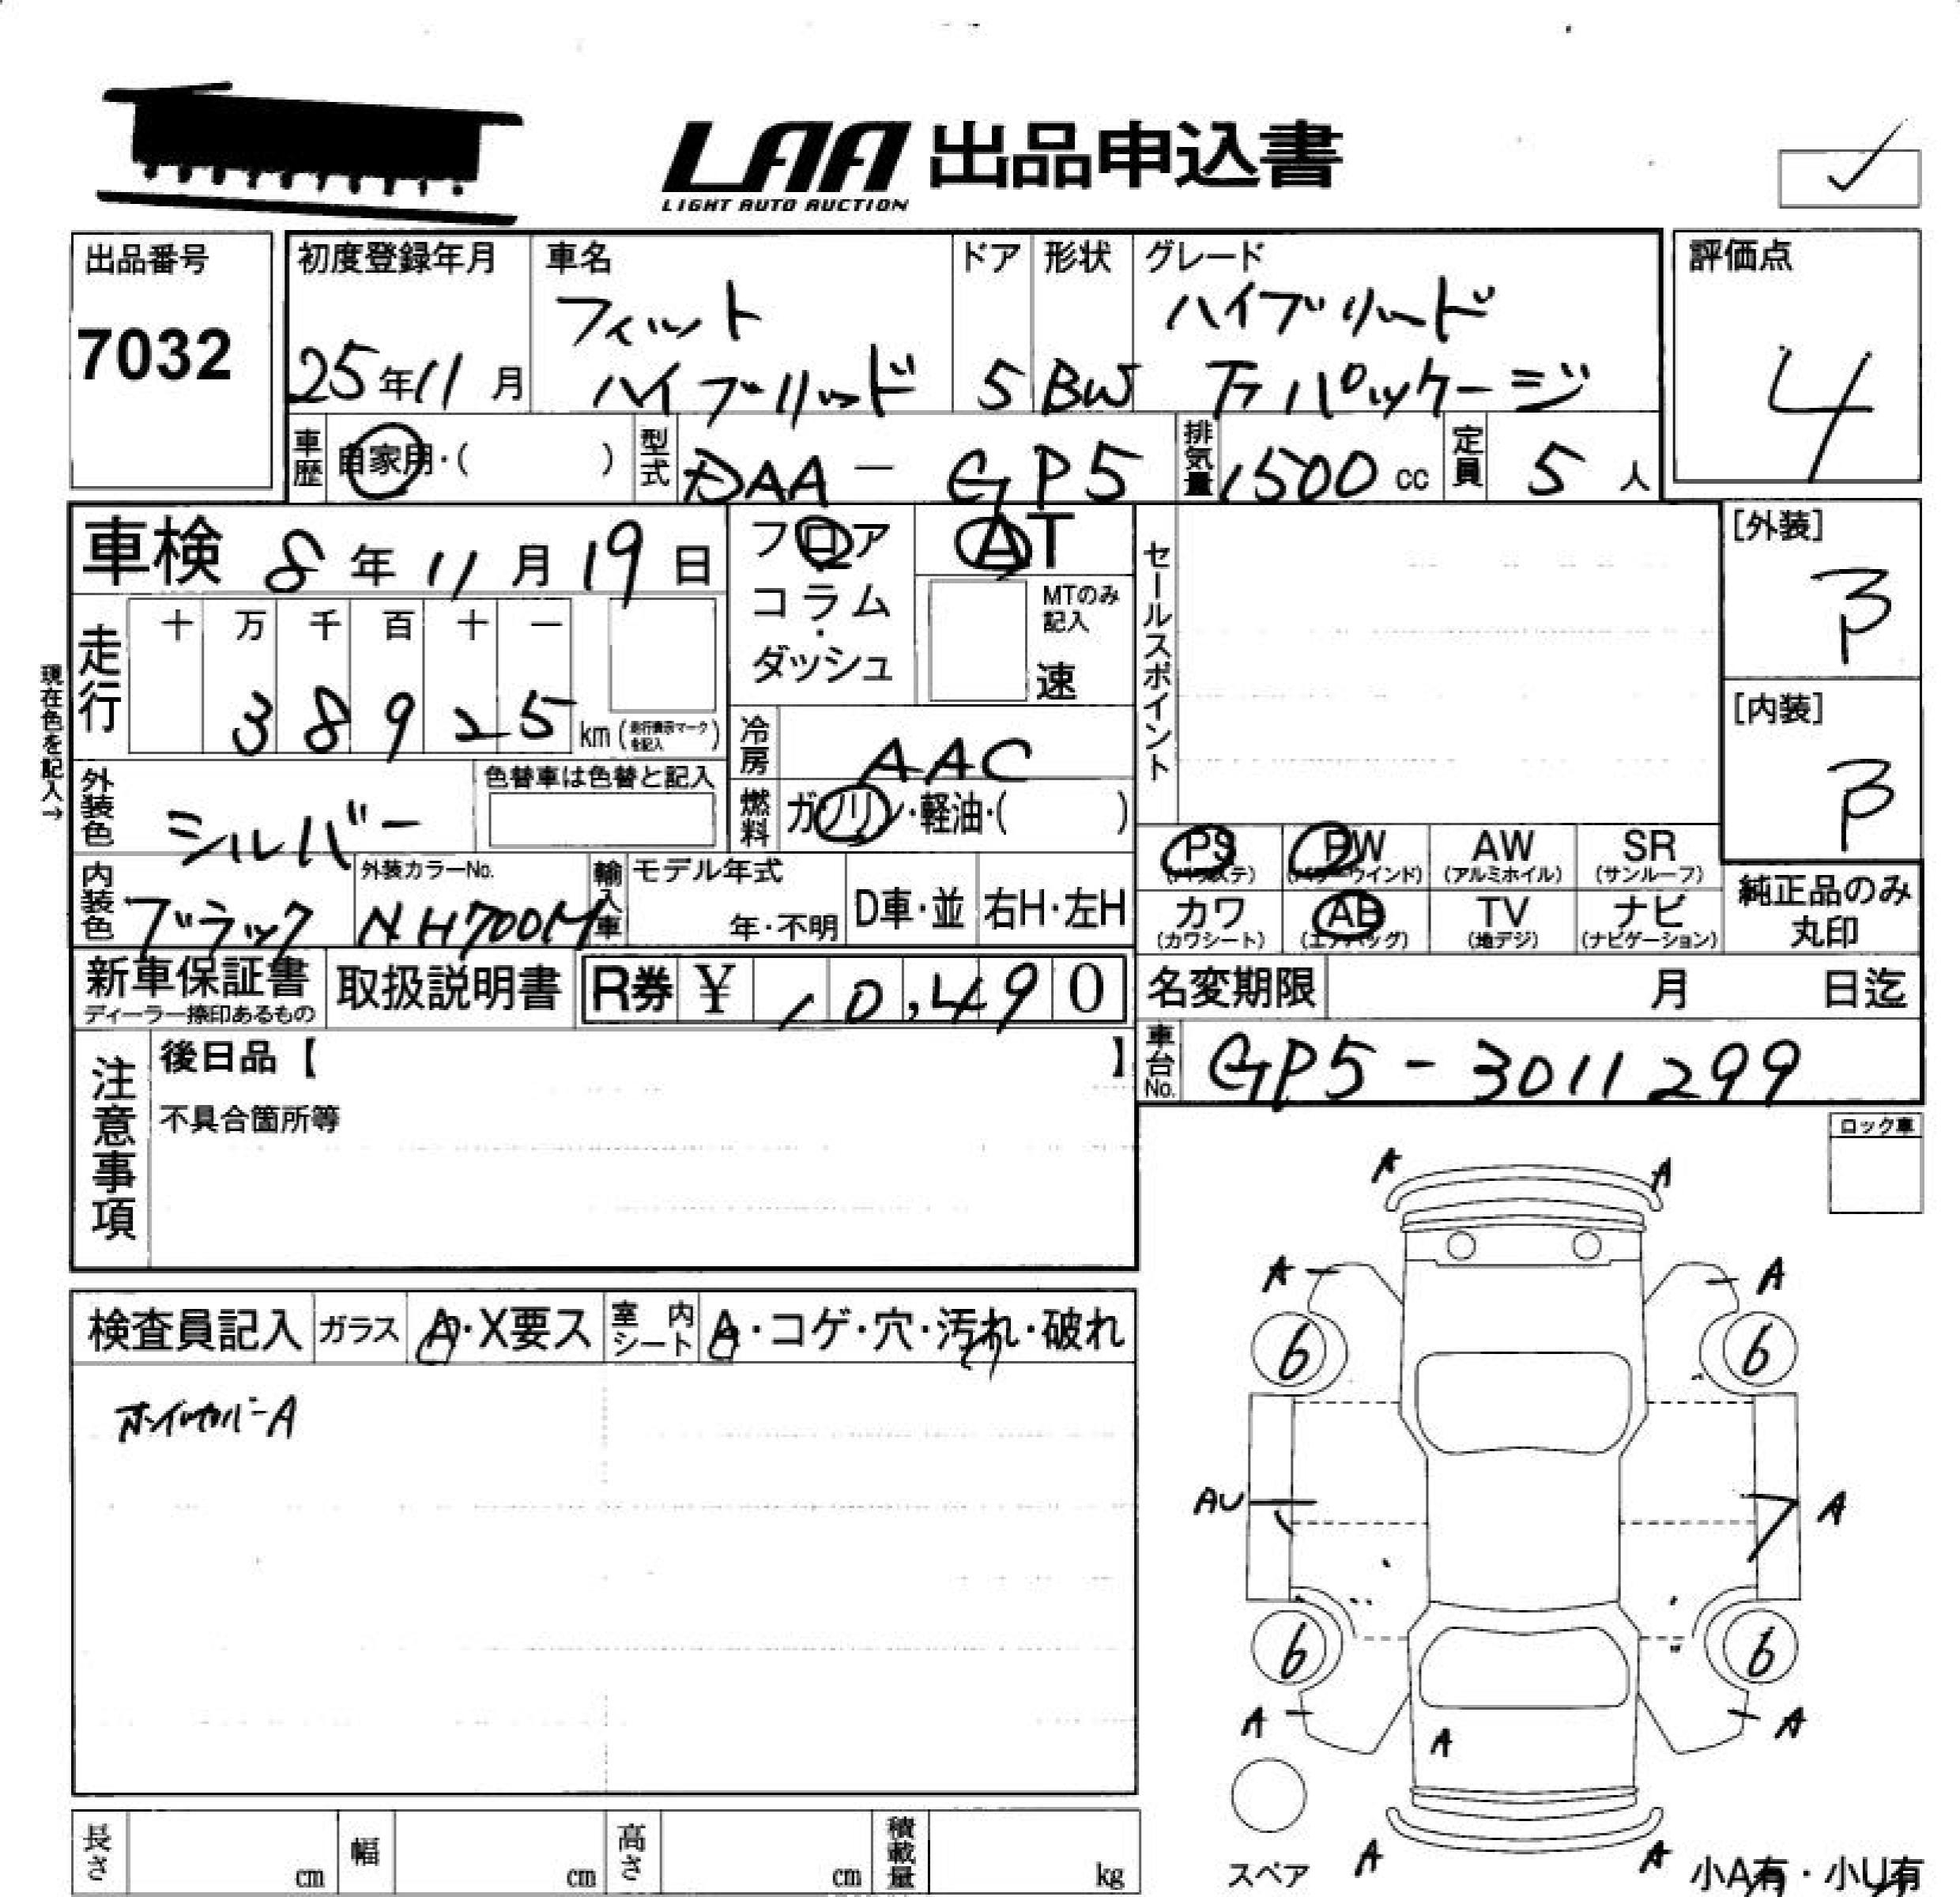 LAA 出品申込書
LIGHT AUTO AUCTION
出品番号
7032
初度登録年月
25年11月
車名
フィット
ハイブリッド
ドア
5
形状
BW
グレード
ハイブリッド
パッケージ
評価点
4
車歴 自家用・( )
型式 DAA-GP5
排気量 1500cc
定員 5人
車検 8年11月19日
フロア
コラム
・
ダッシュ
AT
MTのみ
記入
速
セールスポイント
[外装]
B
[内装]
B
現在色を記入→
走行
十 万 千 百 十 一
3 8 9 2 5 km(走行表示マークを記入)
冷房 AAC
燃料 ガソリン・軽油・( )
外装色 シルバー
色替車は色替と記入
内装色 ブラック
外装カラーNo.
NH700M
輸入車
モデル年式
年・不明
D車・並
右H・左H
PS (パワステ)
PW (パワーウインド)
AW (アルミホイル)
SR (サンルーフ)
カワ (カワシート)
AB (エアバッグ)
TV (地デジ)
ナビ (ナビゲーション)
純正品のみ
丸印
新車保証書
ディーラー捺印あるもの
取扱説明書
R券 ¥ 10,490
名変期限 月 日迄
車台No. GP5-3011299
注意事項
後日品【 】
不具合箇所等
ロック車
検査員記入
ガラス A・X要ス
室内シート A・コゲ・穴・汚れ・破れ
ホイルカバーA
A A
A A
6 6
AU A
6 6
A A
A
A A
スペア
小A有・小U有
長さ cm
幅 cm
高さ cm
積載量 kg